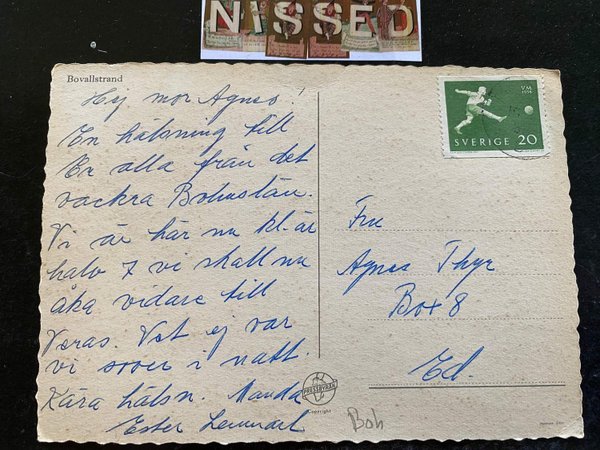 NISSED
Bovallstrand
Hej mor Agnes!
En hälsning till
Er alla från det
vackra Bohuslän.
Vi är här nu kl. är
halv 7 vi skall nu
åka vidare till
Veras. Vet ej var
vi sover i natt.
Kära hälsn. Manda
Ester Lennart
VM
1958
SVERIGE 20
Fru
Agnes Thyr
Box 8
Ed
PRESSBYRÅN
Copyright
Boh